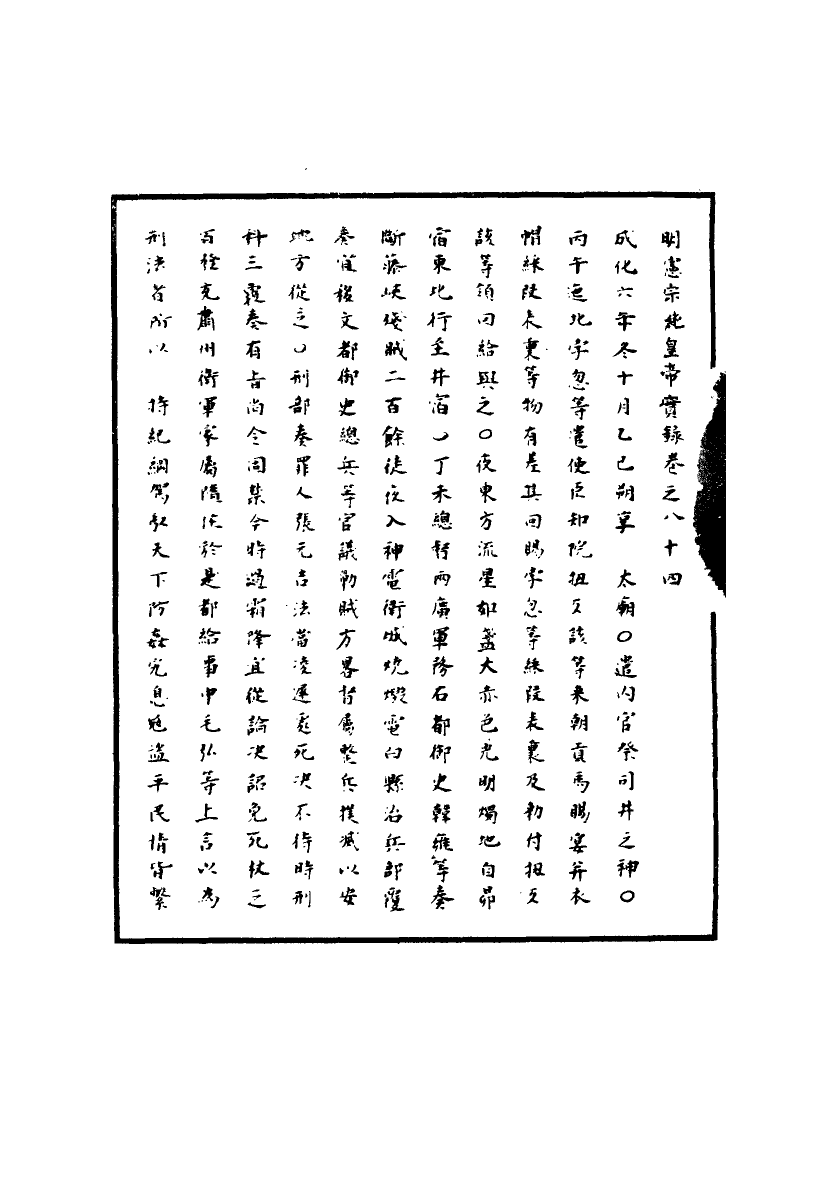 明憲宗純皇帝實錄卷之八十四
成化六年冬十月乙巳朔享　太廟○遣內官祭司井之神○
丙午迤北孛忽等遣使臣知院扭歹該等來朝貢馬賜宴并衣
帽綵叚表裏等物有差其回賜孛忽等綵叚表裏及勅付扭歹
該等領回給與之○夜東方流星如盞大赤色光明燭地自昴
宿東北行至井宿○丁未總督兩廣軍務右都御史韓雍等奏
斷藤峽殘賊二百餘徒夜入神電衛城燒燬電白縣治兵部覆
奏宜移文都御史總兵等官議勦賊方畧督屬整兵撲滅以安
地方從之○刑部奏罪人張元吉法當凌遲處死決不待時刑
科三覆奏有旨尚令固禁今時遇霜降宜從論決詔免死杖之
百發充肅州衛軍家屬隨住於是都給事中毛弘等上言以為
刑法者所以　持紀綱駕馭天下防姦宄息寇盜平民情皆繫